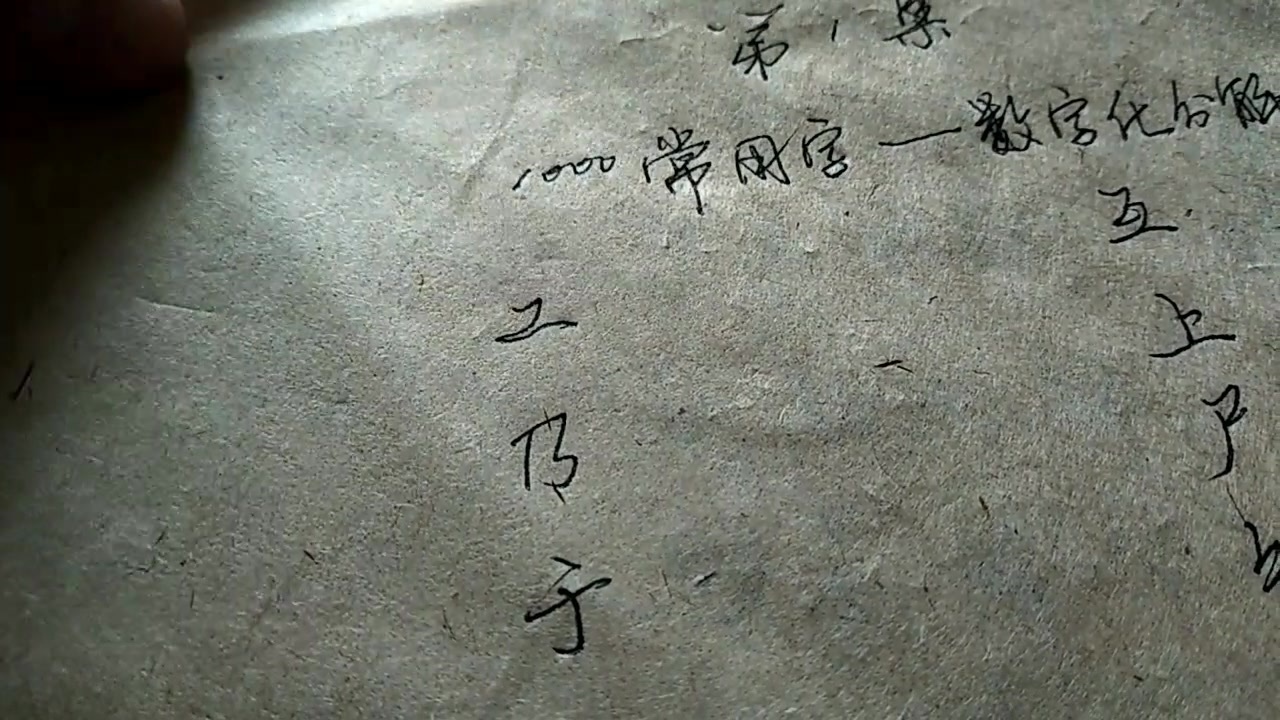 第1集
1000常用字—数字化分解
互
工
上
乃
尸
于